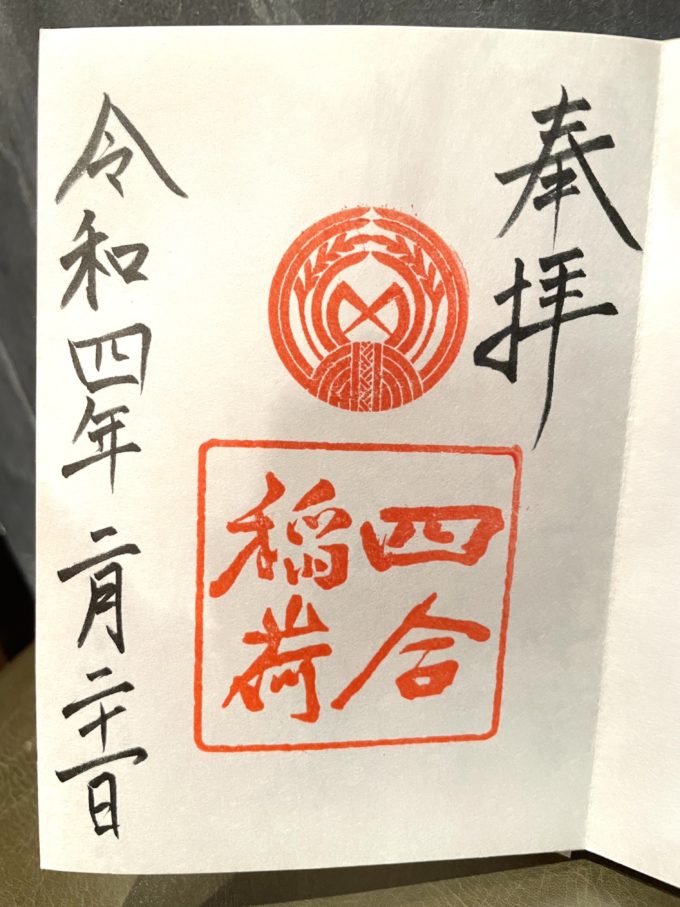 奉拝
四合
稲荷
令和四年二月二十一日